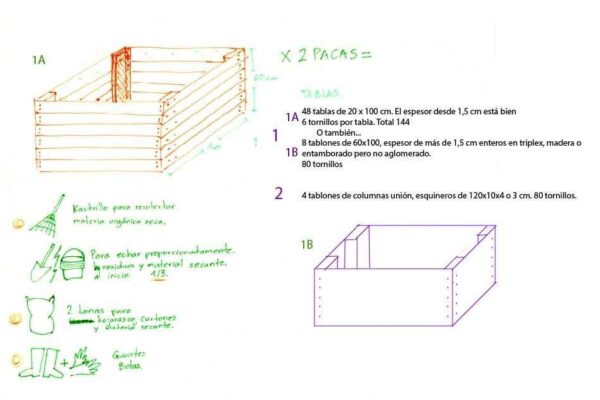 1A
X 2 PACAS =
TABLAS
1A 48 tablas de 20 x 100 cm. El espesor desde 1,5 cm está bien
6 tornillos por tabla. Total 144
1 O también...
1B 8 tablones de 60x100, espesor de más de 1,5 cm enteros en triplex, madera o
entamborado pero no aglomerado.
80 tornillos
2 4 tablones de columnas unión, esquineros de 120x10x4 o 3 cm. 80 tornillos.
1B
Rastrillo para recolectar
materia orgánica seca.
Para echar proporcionadamente
residuos y material secante.
al inicio 1/3.
2 Lonas para
hojarasca, cartones
y material secante.
Guantes
Botas.